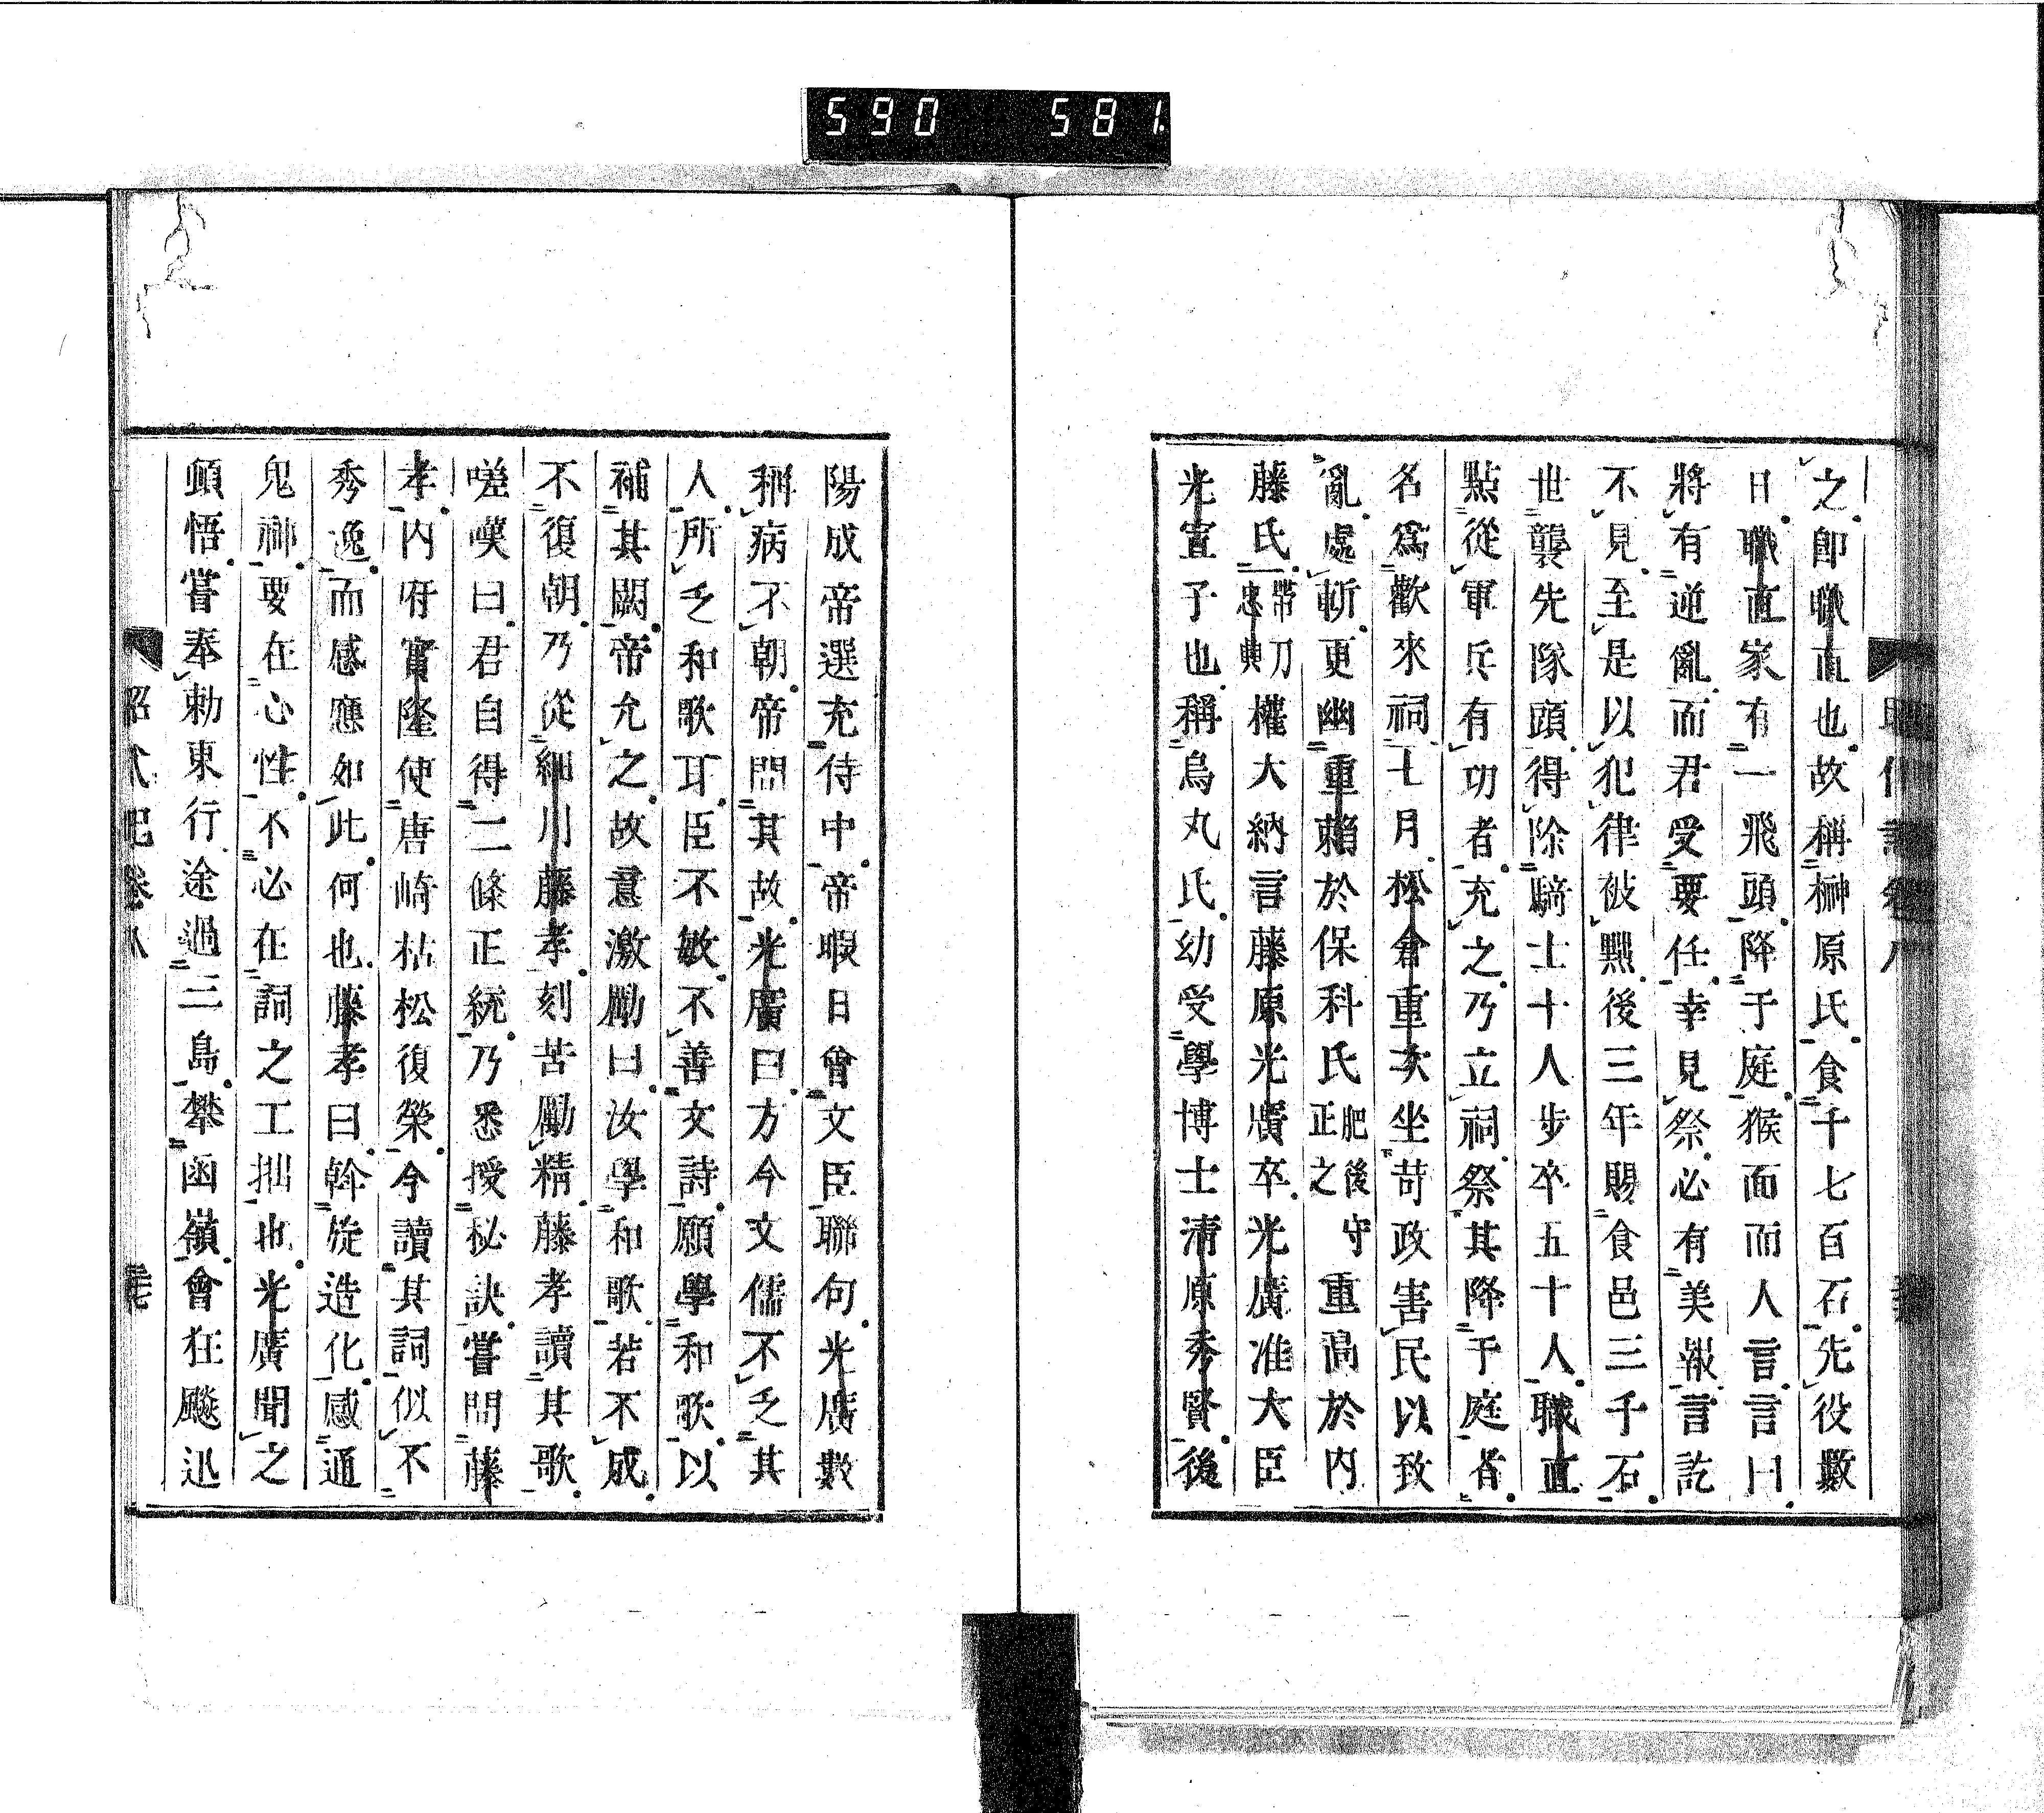 590 581.
之卽職直也故稱榊原氏食千七百石先役數
日職直家有一飛頭降于庭猴面而人言言曰
將有逆亂而君受要任幸見祭必有美報言訖
不見至是以犯律被黜後三年賜食邑三千石
世襲先隊頭得除騎士十人步卒五十人職直
點從軍兵有功者充之乃立祠祭其降于庭者
名爲歡來祠七月松倉重次坐苛政害民以致
亂處斬更幽重賴於保科氏肥後守正之重高於內
藤氏帶刀忠興權大納言藤原光廣卒光廣准大臣
光宣子也稱烏丸氏幼受學博士淸原秀賢後
陽成帝選充侍中帝暇日會文臣聯句光廣數
稱病不朝帝問其故光廣曰方今文儒不乏其
人所乏和歌耳臣不敏不善文詩願學和歌以
補其闕帝允之故意激勵曰汝學和歌若不成
不復朝乃從細川藤孝刻苦勵精藤孝讀其歌
嗟嘆曰君自得二條正統乃悉授秘訣嘗問藤
孝內府實隆使唐崎枯松復榮今讀其詞似不
秀逸而感應如此何也藤孝曰斡旋造化感通
鬼神要在心性不必在詞之工拙也光廣聞之
頓悟嘗奉勅東行途過三島攀函嶺會狂飈迅